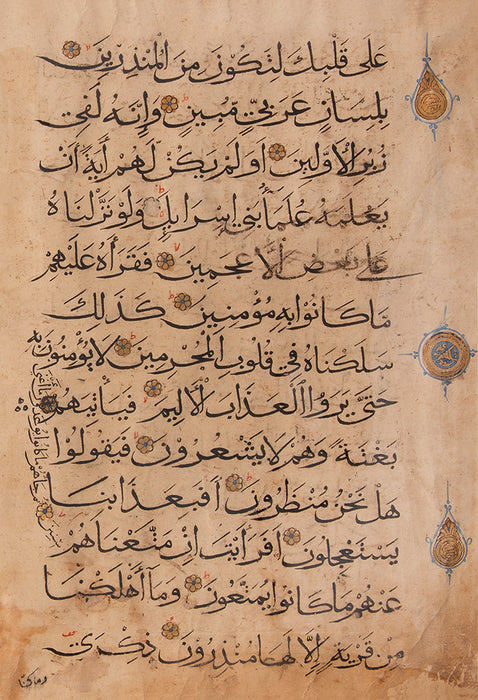 عَلَى قَلْبِكَ لِتَكُونَ مِنَ الْمُنْذِرِينَ
بِلِسَانٍ عَرَبِيٍّ مُبِينٍ وَإِنَّهُ لَفِي
زُبُرِ الْأَوَّلِينَ أَوَلَمْ يَكُنْ لَهُمْ آيَةً أَنْ
يَعْلَمَهُ عُلَمَاءُ بَنِي إِسْرَائِيلَ وَلَوْ نَزَّلْنَاهُ
عَلَى بَعْضِ الْأَعْجَمِينَ فَقَرَأَهُ عَلَيْهِمْ
مَا كَانُوا بِهِ مُؤْمِنِينَ كَذَلِكَ
سَلَكْنَاهُ فِي قُلُوبِ الْمُجْرِمِينَ لَا يُؤْمِنُونَ بِهِ
حَتَّى يَرَوُا الْعَذَابَ الْأَلِيمَ فَيَأْتِيَهُمْ
بَغْتَةً وَهُمْ لَا يَشْعُرُونَ فَيَقُولُوا
هَلْ نَحْنُ مُنْظَرُونَ أَفَبِعَذَابِنَا
يَسْتَعْجِلُونَ أَفَرَأَيْتَ إِنْ مَتَّعْنَاهُمْ
سِنِينَ ثُمَّ جَاءَهُمْ مَا كَانُوا يُوعَدُونَ مَا أَغْنَى
عَنْهُمْ مَا كَانُوا يُمَتَّعُونَ وَمَا أَهْلَكْنَا
مِنْ قَرْيَةٍ إِلَّا لَهَا مُنْذِرُونَ ذِكْرَى
وما كنا